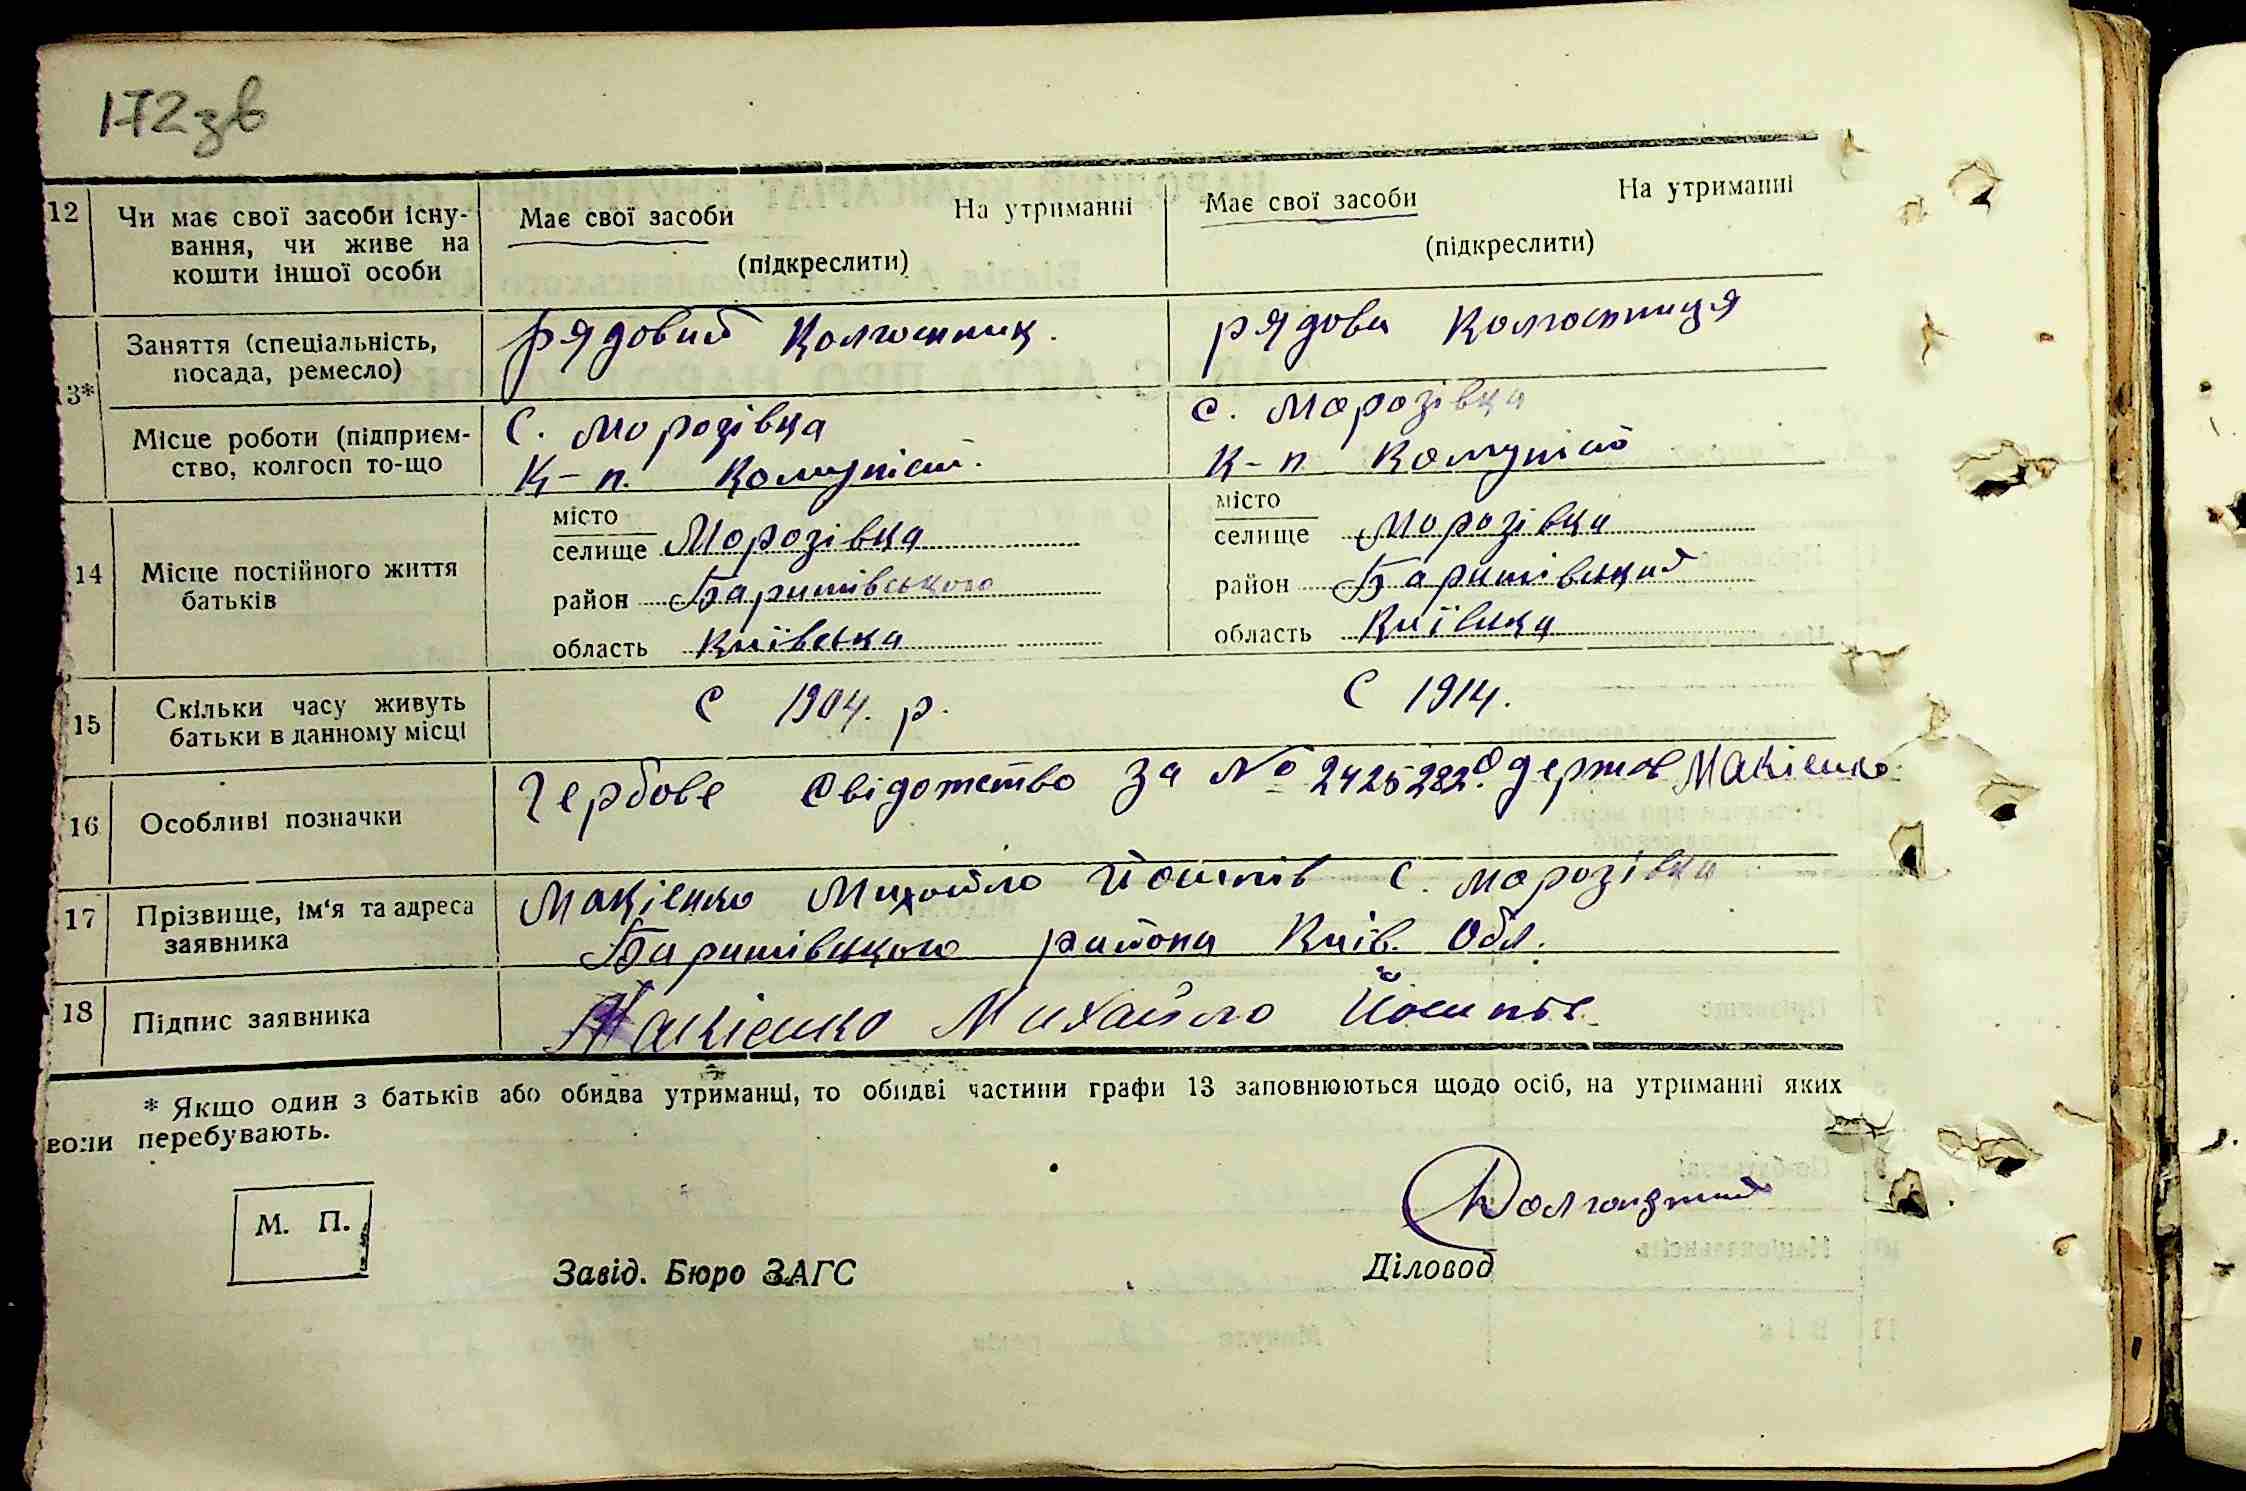 172зв
12 Чи має свої засоби існу- Має свої засоби На утриманні Має свої засоби На утриманні
вання, чи живе на
кошти іншої особи (підкреслити) (підкреслити)
13* Заняття (спеціальність, рядовий колгоспник. рядова колгоспниця
посада, ремесло)
Місце роботи (підприєм- С. Морозівка с. Морозівка
ство, колгосп то-що К-п. Комуніст. К-п Комуніст
14 Місце постійного життя
батьків
місто
селище Морозівка
район Баришівського
область Київська
місто
селище Морозівка
район Баришівський
область Київська
15 Скільки часу живуть С 1904. р. С 1914.
батьки в данному місці
16 Особливі позначки Гербове свідотство за № 2425282. Одержав Макієнко
17 Прізвище, ім‘я та адреса Макієнко Михайло Йосипів С. Морозівка
заявника Баришівського района Київ. Обл.
18 Підпис заявника Макієнко Михайло Йосипов
* Якщо один з батьків або обидва утриманці, то обидві частини графи 13 заповнюються щодо осіб, на утриманні яких
воли перебувають.
М. П.
Завід. Бюро ЗАГС Діловод